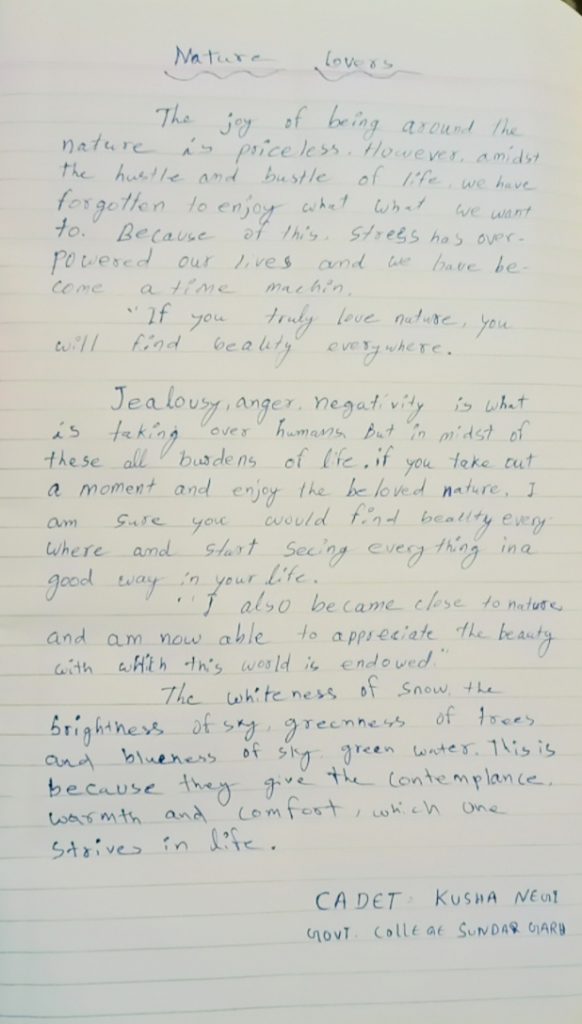 Nature lovers
The joy of being around the
nature is priceless. However, amidst
the hustle and bustle of life, we have
forgotten to enjoy what what we want
to. Because of this, stress has over-
powered our lives and we have be-
come a time machin.
"If you truly love nature, you
will find beality everywhere.
Jealousy, anger, negativity is what
is taking over humans. But in midst of
these all burdens of life, if you take out
a moment and enjoy the beloved nature, I
am sure you would find beality every
where and start seeing every thing in a
good way in your life.
"I also became close to nature
and am now able to appreciate the beauty
with which this world is endowed."
The whiteness of snow, the
brightness of sky, greenness of trees
and blueness of sky, green water. This is
because they give the contemplance,
warmth and comfort, which one
strives in life.
CADET: KUSHA NEGI
GOVT. COLLEGE SUNDARGARH